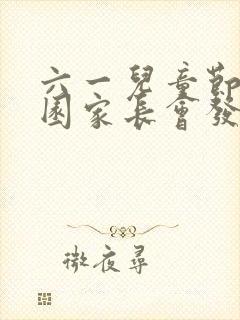 六一兒童節
園家長會發
微夜尋